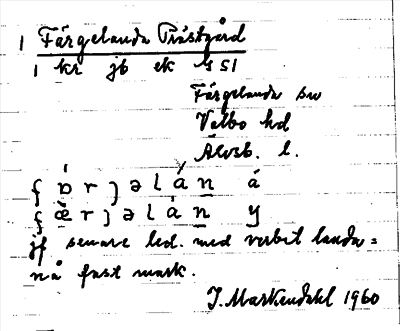 1 Färgelanda Prästgård
1 kr jb ek h s1
Färgelanda sn
Valbo hd
Älvsb. l.
å
y
jf senare led. med verbet landa =
nå fast mark.
J. Markendahl 1960